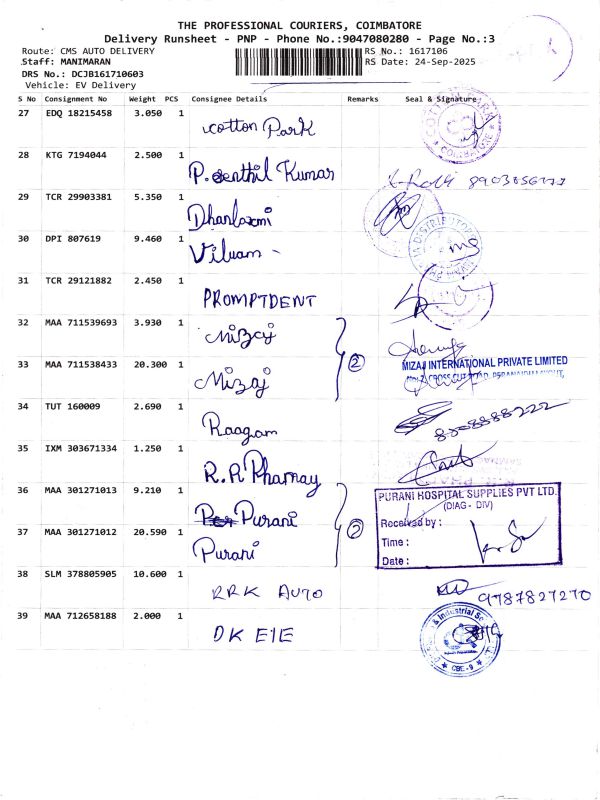 THE PROFESSIONAL COURIERS, COIMBATORE
Delivery Runsheet - PNP - Phone No.:9047080280 - Page No.:3
Route: CMS AUTO DELIVERY
RS No.: 1617106
Staff: MANIMARAN
RS Date: 24-Sep-2025
DRS No.: DCJB161710603
Vehicle: EV Delivery
S No Consignment No Weight PCS Consignee Details Remarks Seal & Signature
27 EDQ 18215458 3.050 1 Cotton Park
28 KTG 7194044 2.500 1 P. Senthil Kumar
29 TCR 29903381 5.350 1 Dhanlaxmi
30 DPI 807619 9.460 1
31 TCR 29121882 2.450 1 PROMPTDENT
32 MAA 711539693 3.930 1 Mizaj
33 MAA 711538433 20.300 1 Mizaj
2
MIZAJ INTERNATIONAL PRIVATE LIMITED
34 TUT 160009 2.690 1 Raagam
35 IXM 303671334 1.250 1 R.R Pharmay
36 MAA 301271013 9.210 1 Purani
37 MAA 301271012 20.590 1 Purani
2
PURANI HOSPITAL SUPPLIES PVT LTD.
(DIAG - DIV)
Received by :
Time :
Date :
38 SLM 378805905 10.600 1 RRK AUTO
9787827270
39 MAA 712658188 2.000 1 DK EIE
& Industrial
CBE-9